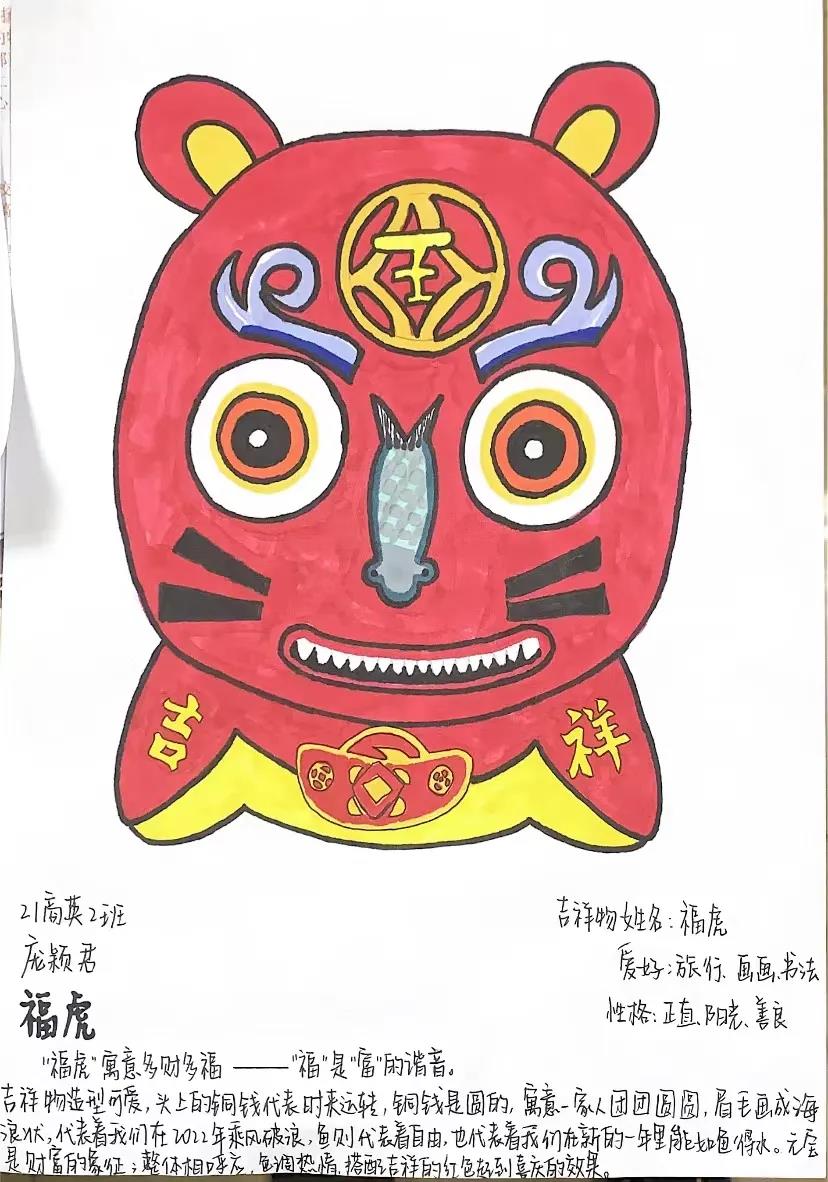 吉
祥
21商英2班
庞颖君
福虎
吉祥物姓名:福虎
爱好:旅行、画画、书法
性格:正直、阳光、善良
"福虎"寓意多财多福 ——"福"是"富"的谐音。
吉祥物造型可爱,头上的铜钱代表时来运转,铜钱是圆的,寓意一家人团团圆圆,眉毛画成海
浪状,代表着我们在2022年乘风破浪,鱼则代表着自由,也代表着我们在新的一年里能如鱼得水。元宝
是财富的象征;整体相呼应,色调热情,搭配吉祥的红色起到喜庆的效果。